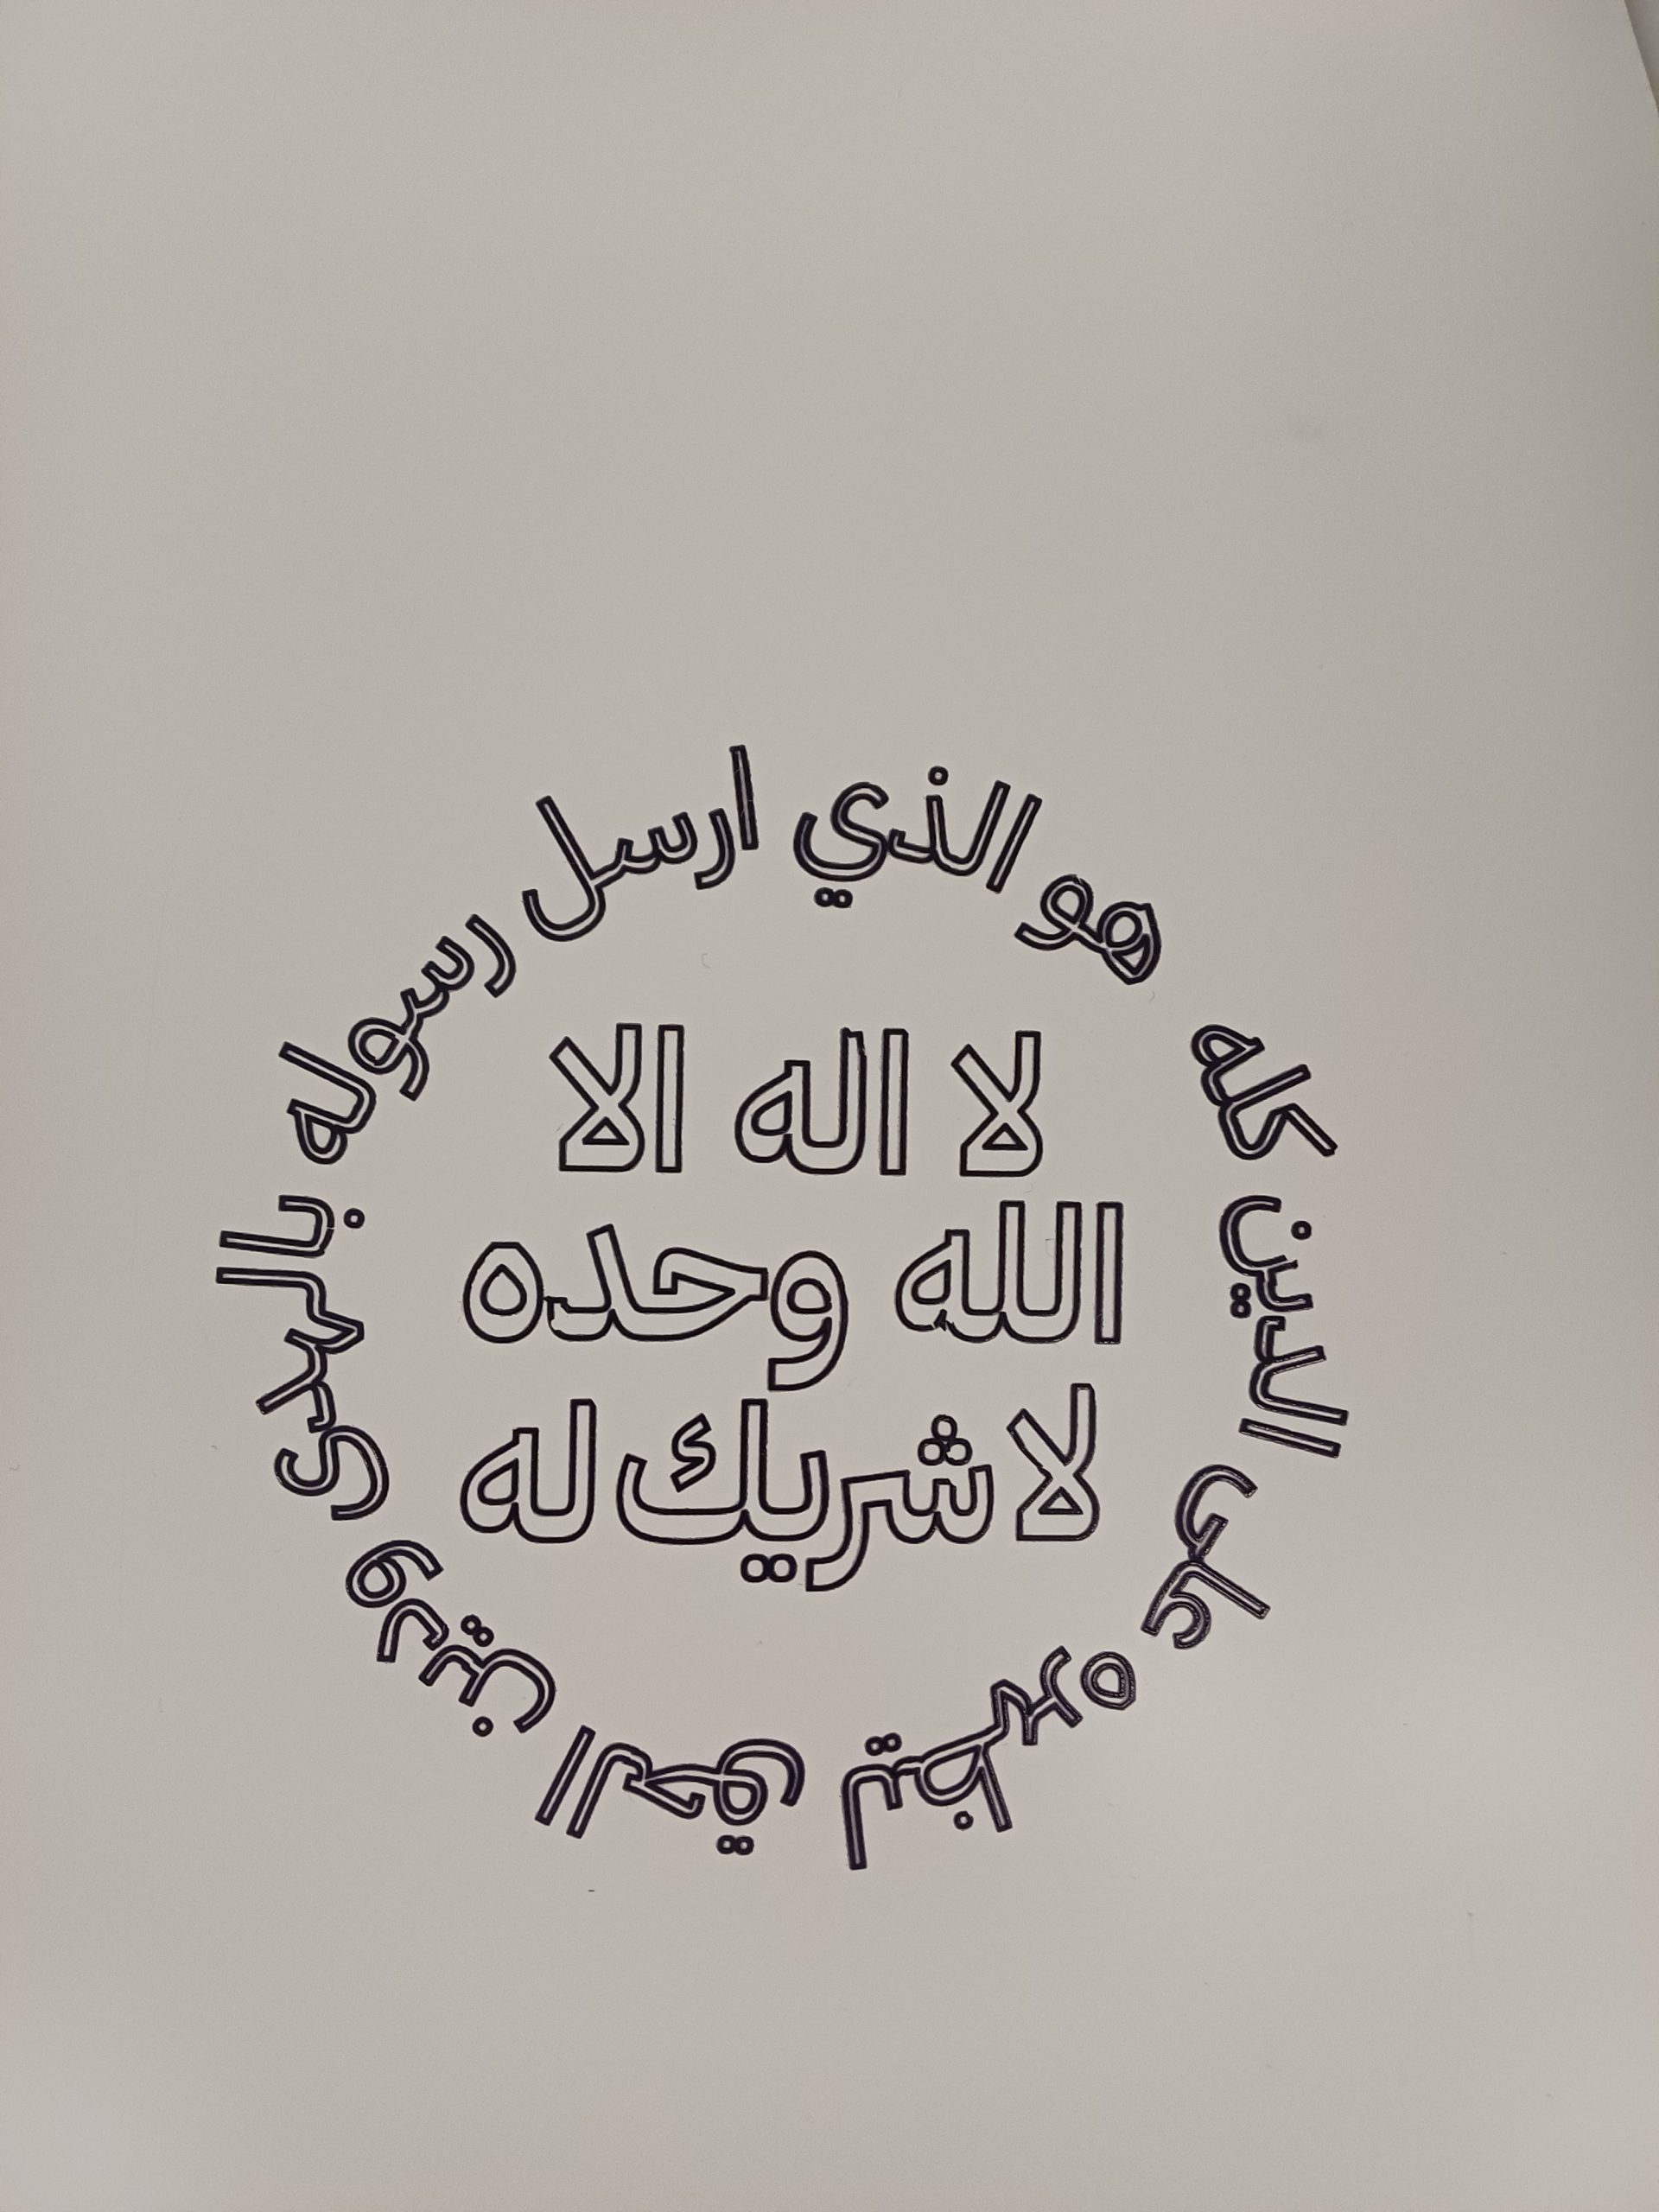 لا اله الا
الله وحده
لا شريك له
هو الذي ارسل رسوله بالهدى ودين الحق ليظهره على الدين كله